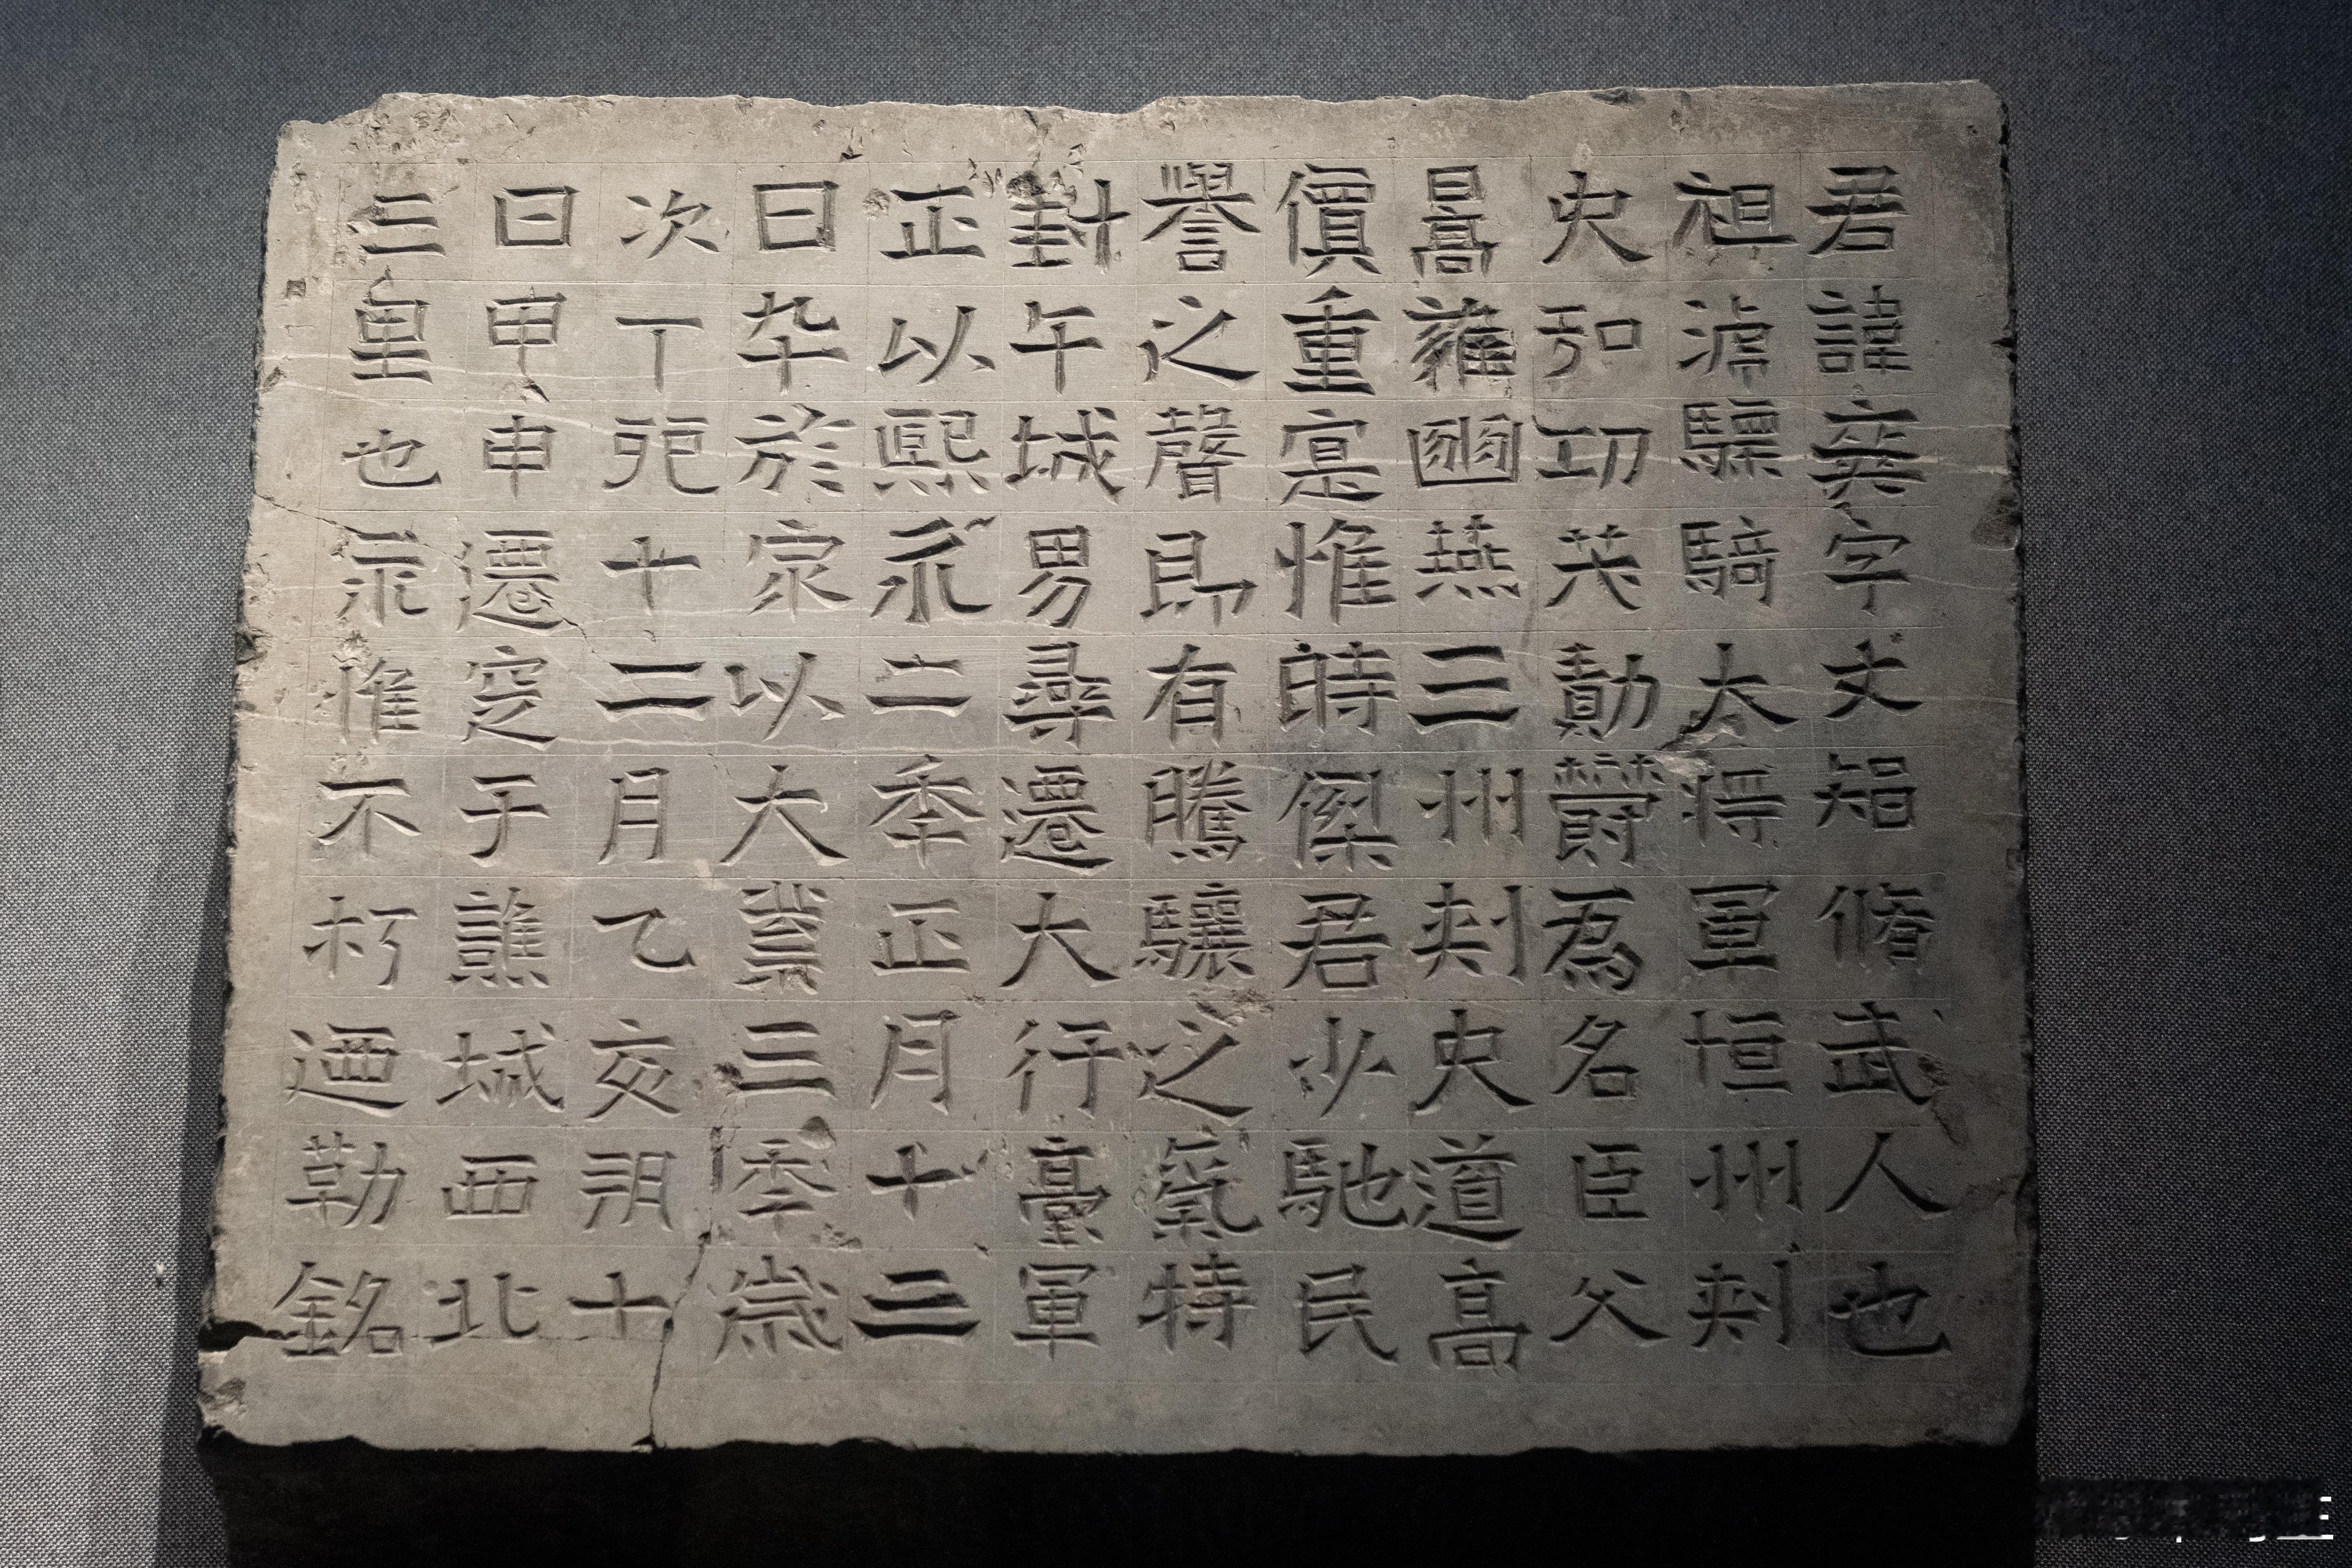 君諱弈字丈智脩武人也
祖滹驃騎大將軍恒州刺
史弘功茂勳爵為名臣父
暠雍豳燕三州刺史道高
價重寔惟時傑君少馳民
譽之聲即有騰驤之氣特
封午城男尋遷大行臺軍
正以熙永二季正月十三
日卒於家以大業三季歲
次丁卯十二月乙亥朔十
日甲申遷窆于譙城西北
三里也永惟不朽迺勒銘